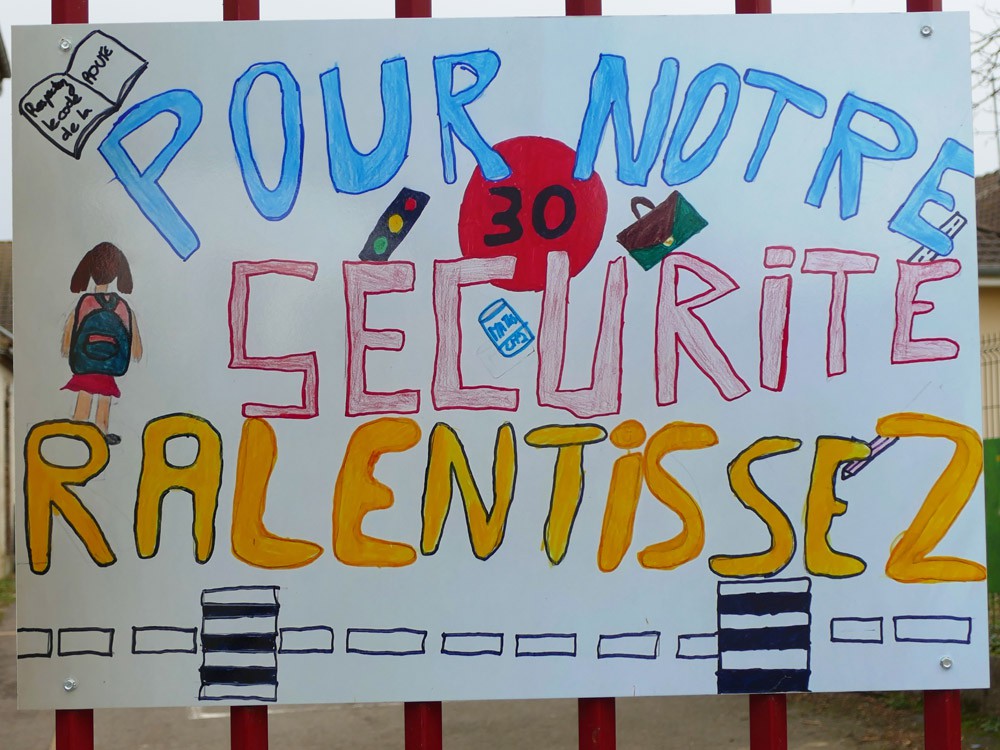 Respectez
le code
de la
ROUTE
POUR NOTRE
30
SÉCURITE
MATHS
CM2
RALENTISSEZ